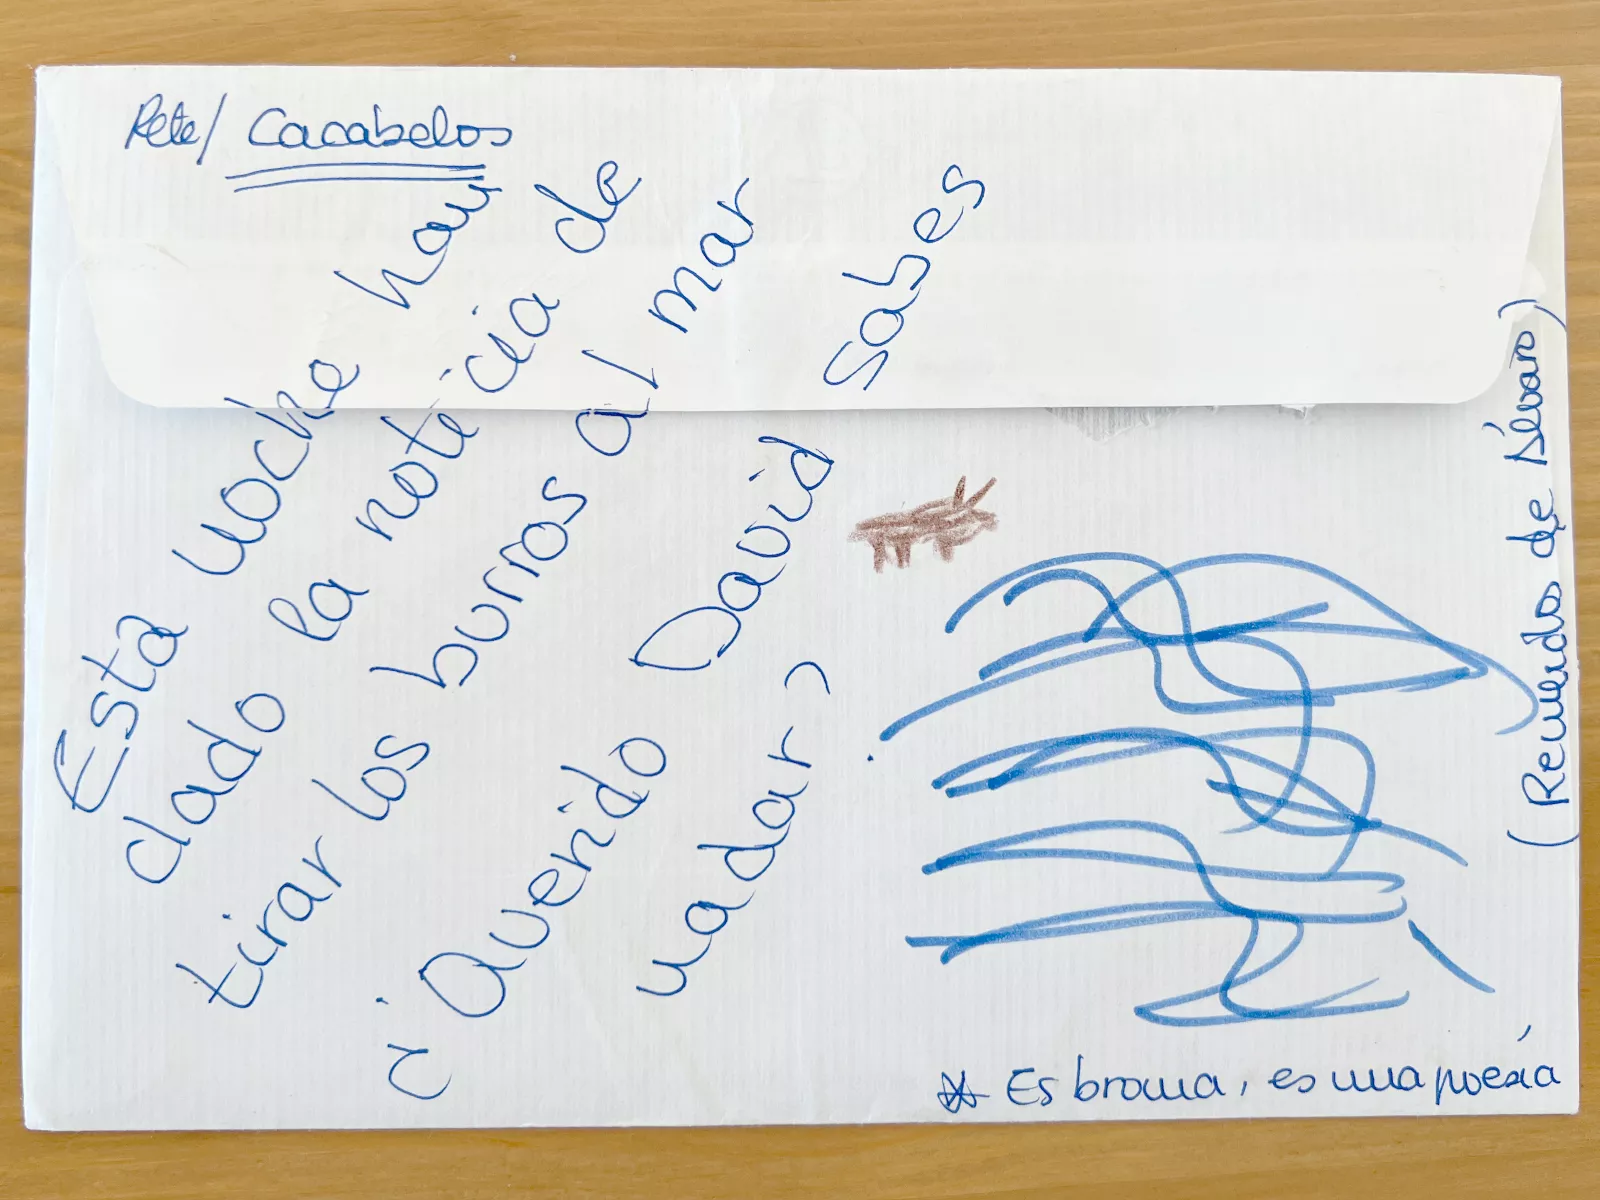 Rete/ Cacabelos
Esta noche han
dado la noticia de
tirar los burros al mar
¿Querido David sabes
nadar?
(Recuerdos de Álvaro)
* Es broma, es una poesía